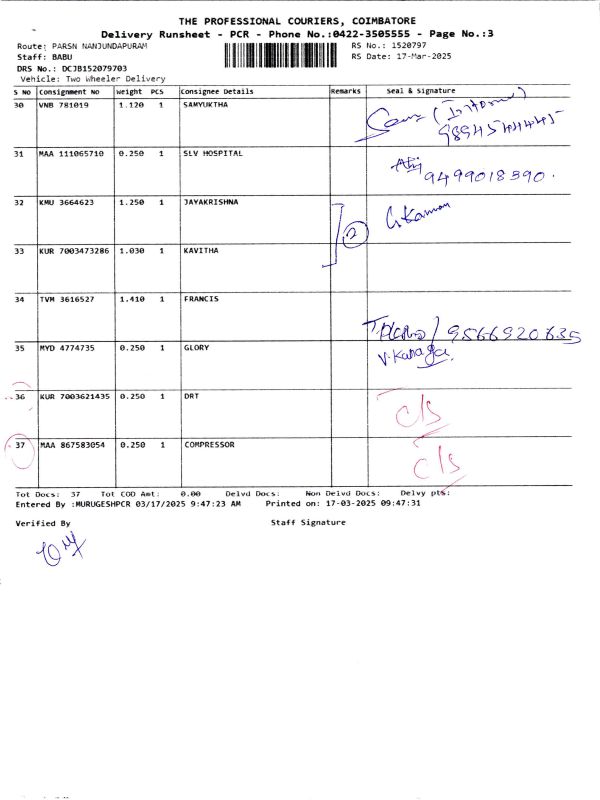 THE PROFESSIONAL COURIERS, COIMBATORE
Delivery Runsheet - PCR - Phone No.:0422-3505555 - Page No.:3
Route: PARSN NANJUNDAPURAM
RS No.: 1520797
Staff: BABU
RS Date: 17-Mar-2025
DRS No.: DCJB152079703
Vehicle: Two Wheeler Delivery
S NO Consignment No Weight PCS Consignee Details Remarks Seal & Signature
30 VNB 781019 1.120 1 SAMYUKTHA
31 MAA 111065710 0.250 1 SLV HOSPITAL
9499018390.
32 KMU 3664623 1.250 1 JAYAKRISHNA
2
33 KUR 7003473286 1.030 1 KAVITHA
34 TVM 3616527 1.410 1 FRANCIS
9566920635
35 MYD 4774735 0.250 1 GLORY
36 KUR 7003621435 0.250 1 DRT
C/S
37 MAA 867583054 0.250 1 COMPRESSOR
C/S
Tot Docs: 37 Tot COD Amt: 0.00 Delvd Docs: Non Delvd Docs: Delvy pts:
Entered By :MURUGESHPCR 03/17/2025 9:47:23 AM Printed on: 17-03-2025 09:47:31
Verified By Staff Signature